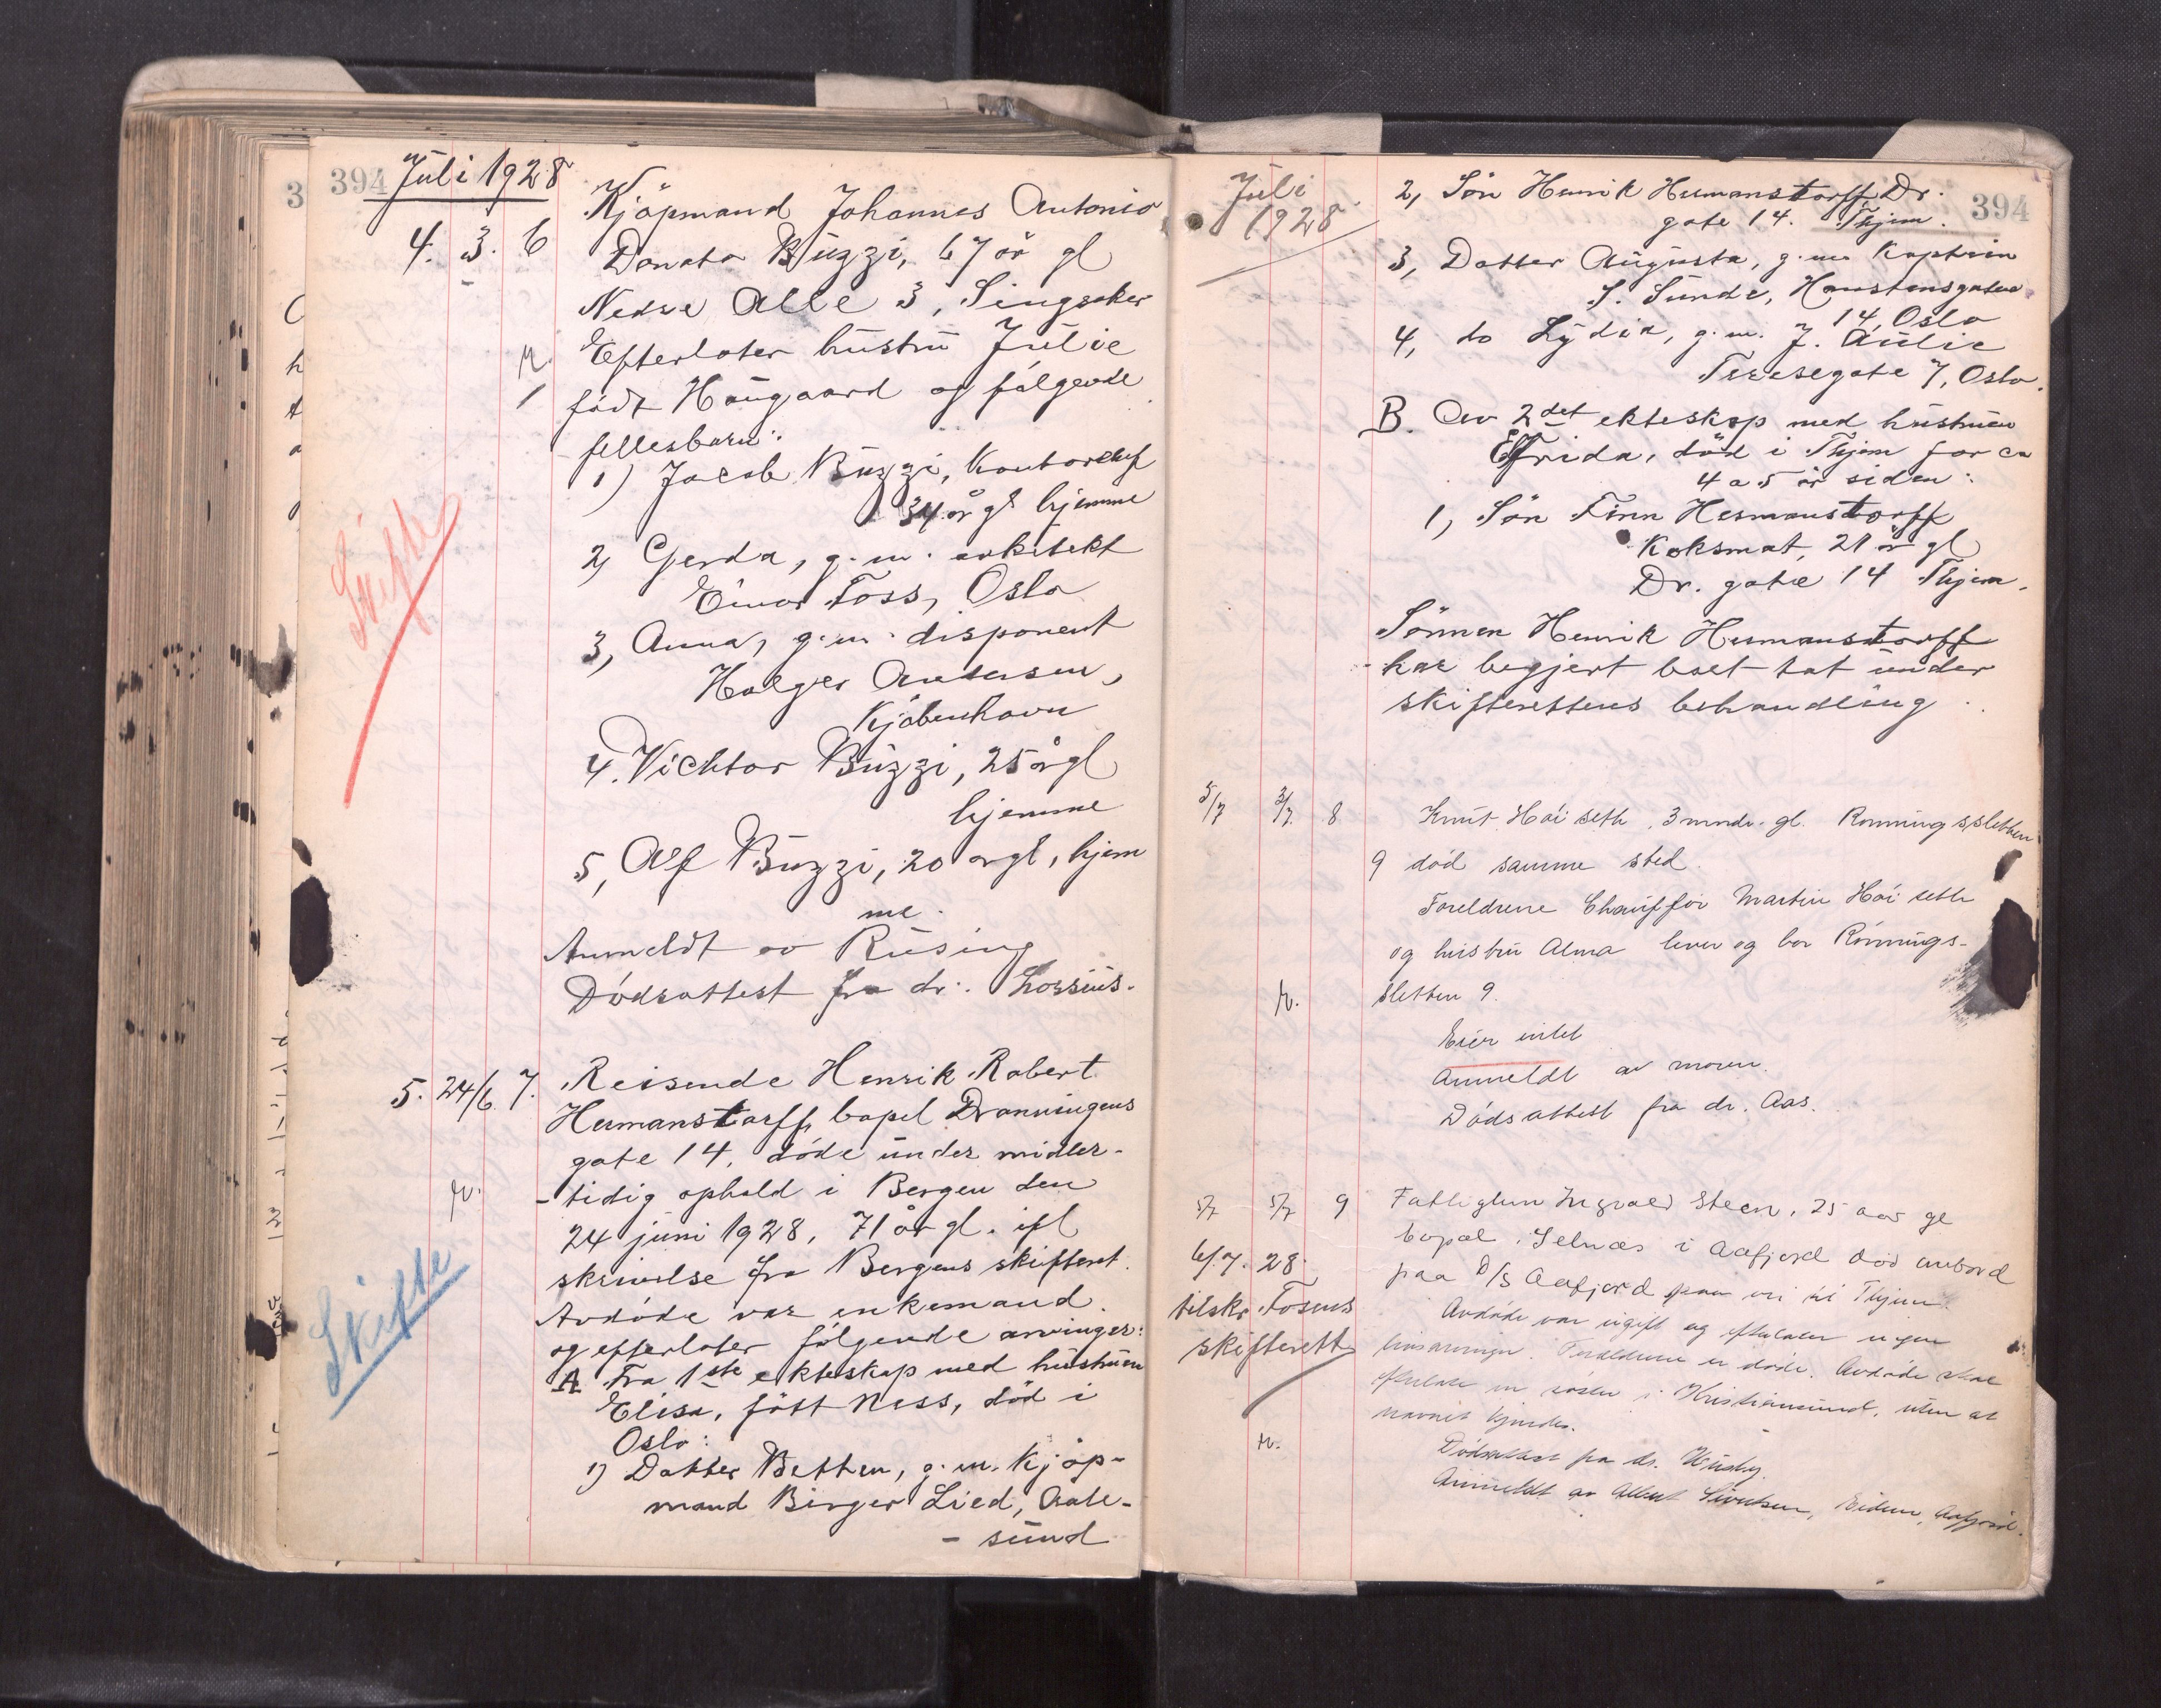 394 Juli 1928
4. 3. 6 Kjøpmand Johannes Antonio
Donato Buzzi, 67 år gl
Nedre Alle 3, Singsaker
Efterlater hustru Julie
født Haugaard og følgende
fellesbarn:
1) Jacob Buzzi, Kontorchef
34 år gl hjemme
2, Gerda, g.m. arkitekt
Einar Foss, Oslo
3, Anna, g.m. disponent
Holger Andersen,
Kjøbenhavn
4. Vichtor Buzzi, 25 år gl
hjemme
5, Alf Buzzi, 20 år gl, hjem
me.
Anmeldt av Rusing
Dødsattest fra dr. Lossius.
Skifte
5. 24/6 7. Reisende Henrik Robert
Hermanstorff, bopel Dronningens
gate 14, døde under midler-
-tidig ophold i Bergen den
24 juni 1928, 71 år gl. ifl
skrivelse fra Bergens skifteret.
Avdøde var enkemand
og efterlater følgende arvinger:
A Fra 1ste ekteskap med hustruen
Elisa, født Ness, død i
Oslo:
1) Datter Bethen, g.m. Kjøp-
mand Birger Lied, Aale-
- sund
Skifte
Juli
1928
394
2, Søn Henrik Hermanstorff, Dr.
gate 14. Thjem.
3, Datter Augusta, g.m. Kaptein
S. Sunde, Haustensgaten
14, Oslo
4, do Lydia, g.m. J. Aulie
Teresegate 7, Oslo.
B. Av 2det ekteskap med hustruen
Elfrida, død i Thjem for ca
4 a 5 år siden:
1, Søn Finn Hermanstorff
Koksmat, 21 år gl
Dr. gate 14 Thjem.
Sønnen Henrik Hermanstorff
har begjert boet tat under
skifterettens behandling.
5/7 3/7. 8 Knut Høiseth, 3 mndr. gl. Rønningsletten
9 død samme sted.
Foreldrene Chauffør Martin Høiseth
og hustru Alma lever og bor Rønnings-
sletten 9.
Eier intet
Anmeldt av moren.
Dødsattest fra dr. Aas.
5/7 5/7 9 Fattiglem Ingvald Steen, 25 aar gl
bopæl Selnæs i Aafjord død ombord
paa D/S Aafjord paa vei til Thjem.
Avdøde var ugift og efterlater ingen
livsarvinger. Foreldrene er døde. Avdøde skal
efterlate en søster i Kristiansund, uten at
navnet kjendes.
Dødsattest fra dr.
Anmeldt av Albert Sivertsen, Eidem, Aafjord.
6/7. 28.
tilskr. Fosens
skifterett